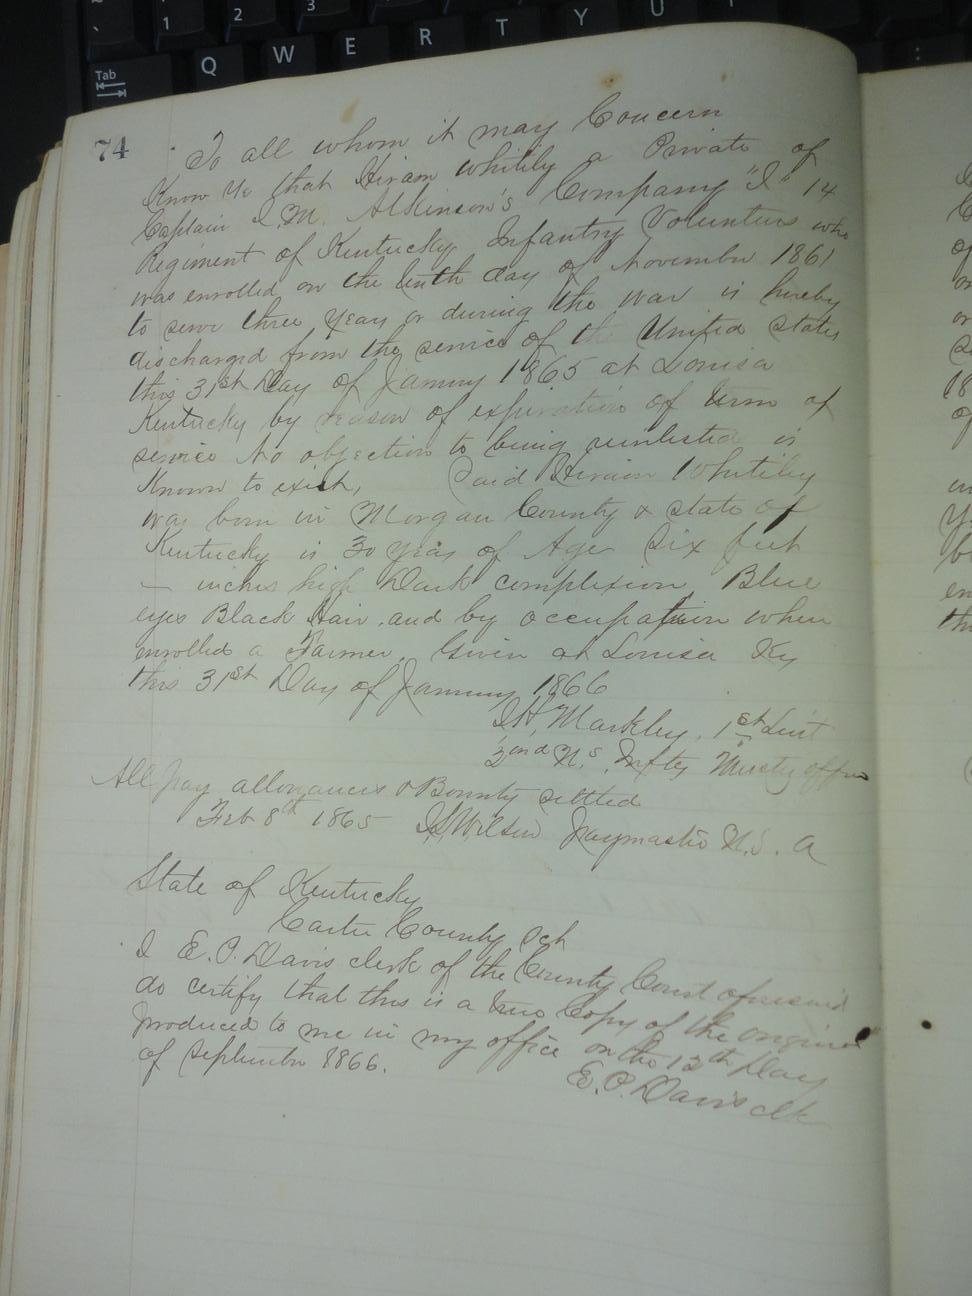 ~ ! 1 2 3
Tab Q W E R T Y U
74
To all whom it may Concern
Know Ye that Hiram Whitley a Private of
Captain I. M. Atkinson's Company "I" 14
Regiment of Kentucky Infantry Volunteers who
was enrolled on the tenth day of November 1861
to serve three years or during the war is hereby
discharged from the service of the United States
this 31st Day of January 1865 at Louisa
Kentucky by reason of expiration of term of
service No objection to being reenlisted is
Known to exist, Said Hiram Whitley
was born in Morgan County & State of
Kentucky is 30 years of Age Six feet
— inches high Dark complexion, Blue
eyes Black Hair, and by occupation when
enrolled a Farmer. Given at Louisa Ky
this 31st Day of January 1866
Markley, 1st Lieut
2nd U.S. Infty Mustg offr
All pay allowances & Bounty settled
Feb 8th 1865 Wilson Paymaster U.S.A
State of Kentucky
Carter County Sct
I E. P. Davis clerk of the County Court aforesaid
do certify that this is a true Copy of the original
produced to me in my office on the 12th Day
of September 1866.
E. P. Davis clk